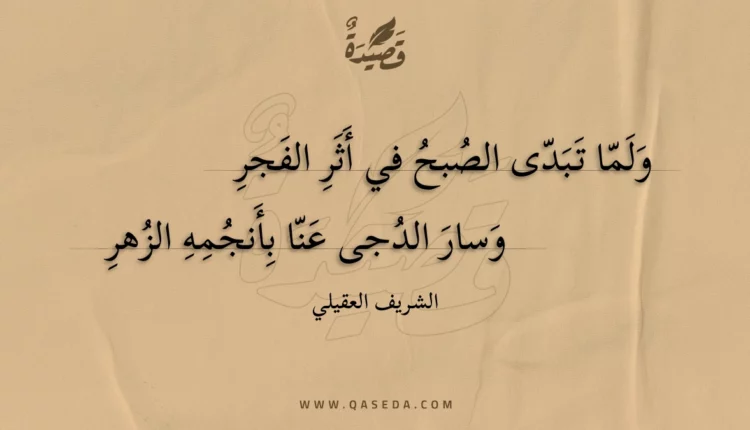 قَصِيْدَةٌ
وَلَمّا تَبَدّى الصُبحُ في أَثَرِ الفَجرِ
وَسارَ الدُجى عَنّا بِأَنجُمِهِ الزُهرِ
الشريف العقيلي
WWW.QASEDA.COM